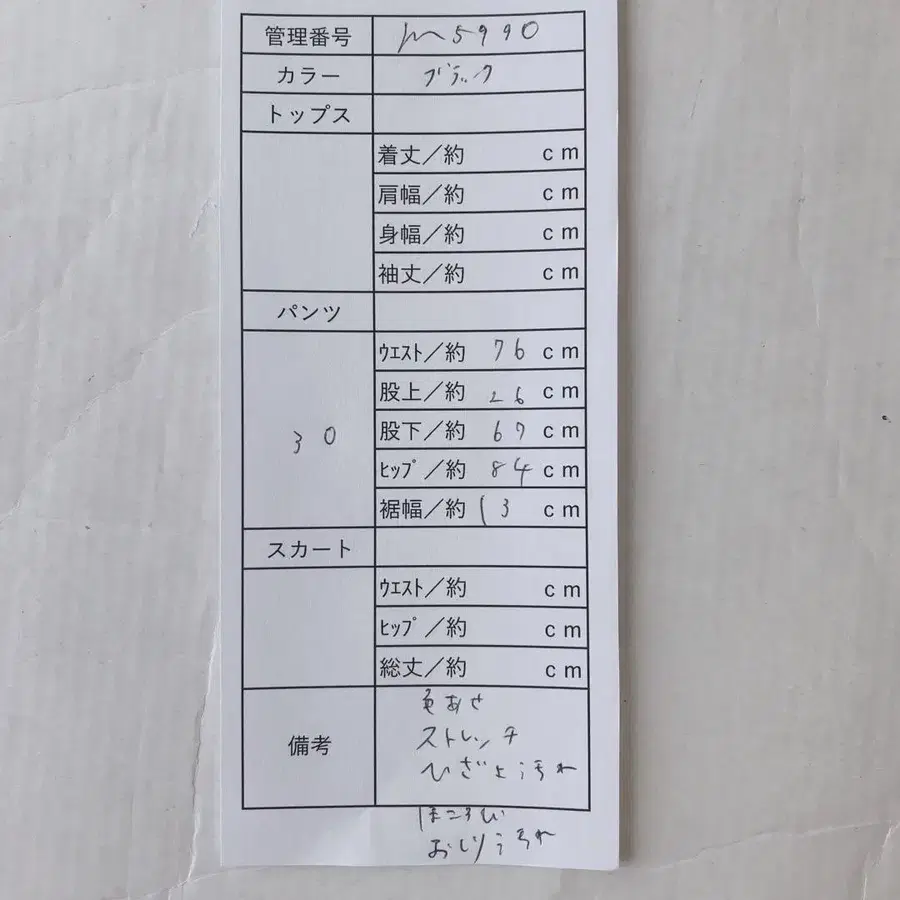 管理番号 m5990
カラー ブラック
トップス
着丈／約 cm
肩幅／約 cm
身幅／約 cm
袖丈／約 cm
パンツ
ｳｴｽﾄ／約 76 cm
股上／約 26 cm
30 股下／約 67 cm
ﾋｯﾌﾟ／約 84 cm
裾幅／約 13 cm
スカート
ｳｴｽﾄ／約 cm
ﾋｯﾌﾟ／約 cm
総丈／約 cm
色あせ
備考 ストレッチ
ひざ 汚れ
ほころび
おしり 汚れ